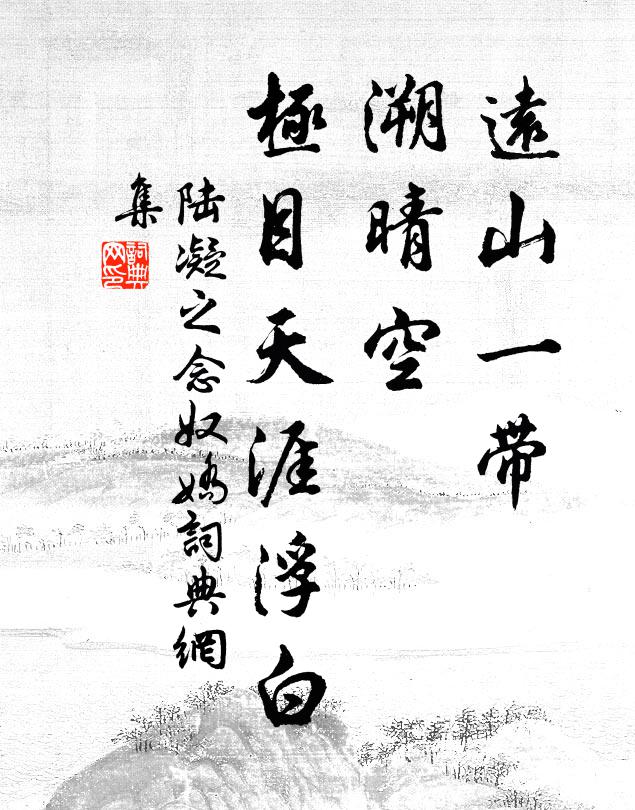 遠山一帶
溯晴空
極目天涯浮白
陸凝之念奴嬌詞典網
集
詞典
网印